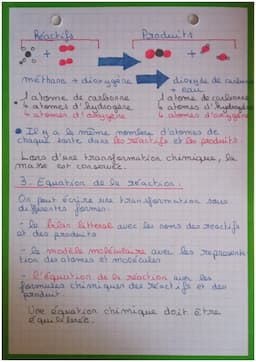 Réactifs Produits
+ +
méthane + dioxygène dioxyde de carbone
+ eau
1 atome de carbone 1 atome de carbone
4 atomes d'hydrogène 4 atomes d'hydrogène
4 atomes d'oxygène 4 atomes d'oxygène
Il y a le même nombre d'atomes de
chaque sorte dans les réactifs et les produits.
Lors d'une transformation chimique, la
masse est conservée.
3. Equation de la réaction:
On peut écrire une transformation sous
différentes formes:
- le bilan littéral avec les noms des réactifs
et des produits
- le modèle moléculaire avec les représenta-
tion des atomes et molécules
- l'équation de la réaction avec les
formules chimiques des réactifs et des
produit.
Une équation chimique doit être
équilibrée.